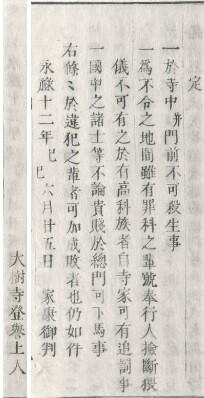 定
一於寺中并門前不可殺生事
一為不入之地間雖有罪科之輩號奉行人撿斷猥
儀不可有之於有高科族者自寺家可有追詞事
一國中之諸士等不論貴賤於總門可下馬事
右條〻於違犯之輩者可加成敗者也仍如件
永祿十二年己巳六月廿五日 家康御判
大樹寺登譽上人